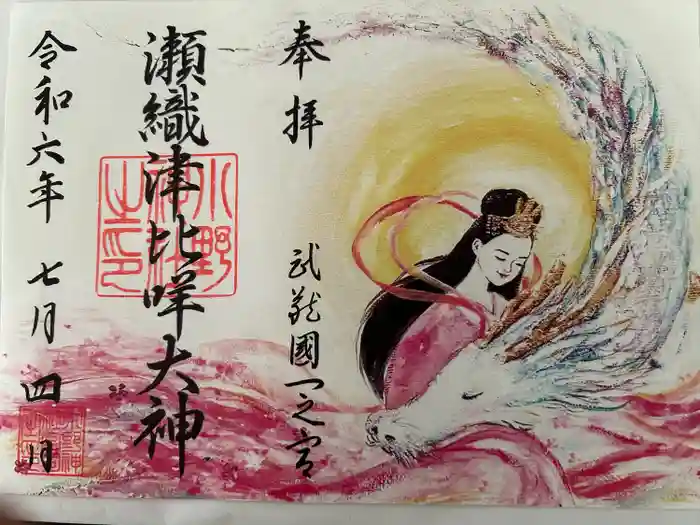 奉拝
武蔵國一之宮
瀬織津比咩大神
小野神社之印
令和六年七月四日